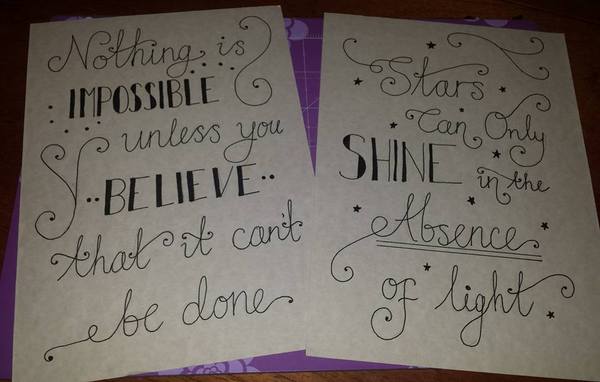 Nothing is
IMPOSSIBLE
unless you
BELIEVE
that it can't
be done
Stars
Can Only
SHINE in the
Absence
of light